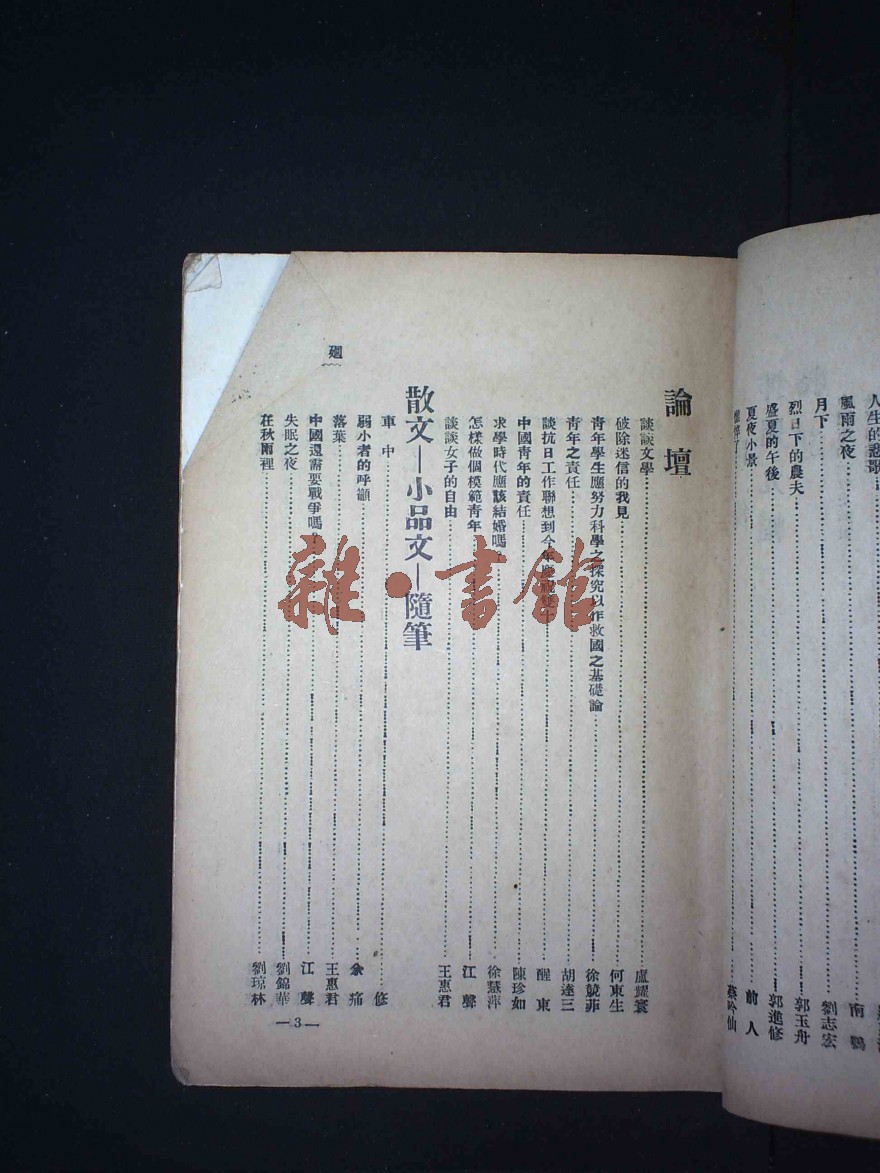 人生的悲歌
風雨之夜 南鶚
月下 劉志宏
烈日下的農夫 郭玉舟
盛夏的午後 郭進修
夏夜小景 前人
蔡吟仙
論壇
談談文學 盧耀寰
破除迷信的我見 何東生
青年學生應努力科學之探究以作救國之基礎論 徐競菲
青年之責任 胡達三
談抗日工作聯想到今年 醒東
中國青年的責任 陳珍如
求學時代應該結婚嗎? 徐慧萍
怎樣做個模範青年 江聲
談談女子的自由 王惠君
散文—小品文—隨筆
車中 修
弱小者的呼籲 余痛
落葉 王惠君
中國還需要戰爭嗎? 江聲
失眠之夜 劉錦華
在秋雨裡 劉琼林
廻
—3—
雜·書館